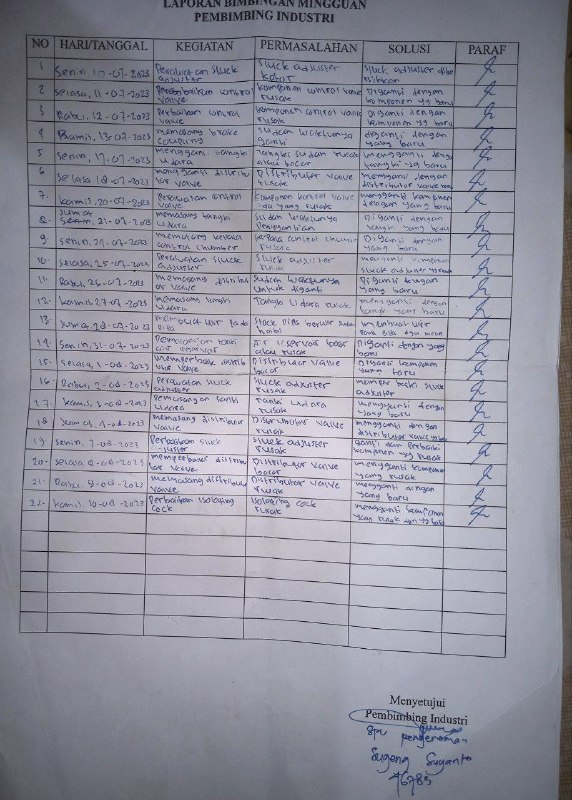 LAPORAN BIMBINGAN MINGGUAN
PEMBIMBING INDUSTRI
NO HARI/TANGGAL KEGIATAN PERMASALAHAN SOLUSI PARAF
1 Senin 10-07-2023 Perawatan Sluck adjuster Sluck adjuster kotor Sluck adjuster
2 Selasa, 11-07-2023 control valve komponen control valve rusak Diganti dengan komponen yg baru
3 Rabu, 12-07-2023 Perbaikan control valve komponen control valve rusak Diganti dengan komponen yg baru
4 Kamis, 13-07-2023 memasang brake coupling sudah waktunya ganti diganti dengan yang baru
5 Senin, 17-07-2023 mengganti tangki udara tangki sudah rusak atau bocor mengganti dengan tangki yg baru
6 Selasa 18-07-2023 mengganti distributor valve Distributor valve rusak mengganti dengan distributor valve
7. kamis, 20-07-2023 Perbaikan control valve komponen control valve ada yang rusak mengganti komponen dengan yang baru
8. Jumat 21-07-2023 memasang tangki udara sudah waktunya Penggantian Diganti dengan tangki yang baru
9 Senin, 24-07-2023 memasang control chumber control chumber rusak Diganti dengan yang baru
10. Selasa, 25-07-2023 Perawatan Sluck adjuster Sluck adjuster rusak mengganti komponen sluck adjuster
11. Rabu, 26-07-2023 memasang distributor valve sudah waktunya untuk diganti Diganti dengan yang baru
12. kamis 27-07-2023 memasang tangki udara Tangki udara rusak mengganti dengan yang baru
13. Jumat, 28-07-2023 membuat uir pada pipa Stock pipa beruir sudah habis membuat uir
14. Senin, 31-07-2023 air reservoar air reservoar bocor atau rusak Diganti dengan yang baru
15. Selasa, 1-08-2023 memperbaiki distributor valve Distributor valve bocor Diganti komponen yang baru
16. Rabu, 2-08-2023 Perawatan sluck adjuster Sluck adjuster rusak memperbaiki sluck adjuster
17. kamis, 3-08-2023 Pemasangan tanki udara Tanki udara rusak mengganti dengan yang baru
18 Jumat, 4-08-2023 memasang distributor valve Distributor valve rusak mengganti dengan distributor valve
19 Senin, 7-08-2023 Perbaikan sluck Sluck adjuster rusak ganti dan Perbaiki komponen yg rusak
20. Selasa 8-08-2023 memperbaiki distributor valve Distributor valve bocor mengganti komponen yang baru
21. Rabu, 9-08-2023 memasang distributor valve Distributor valve rusak mengganti dengan yang baru
22. kamis, 10-08-2023 Perbaikan isolating cock Isolating cock rusak mengganti komponen yang rusak
Menyetujui
Pembimbing Industri
Sugeng Suyanto
76783